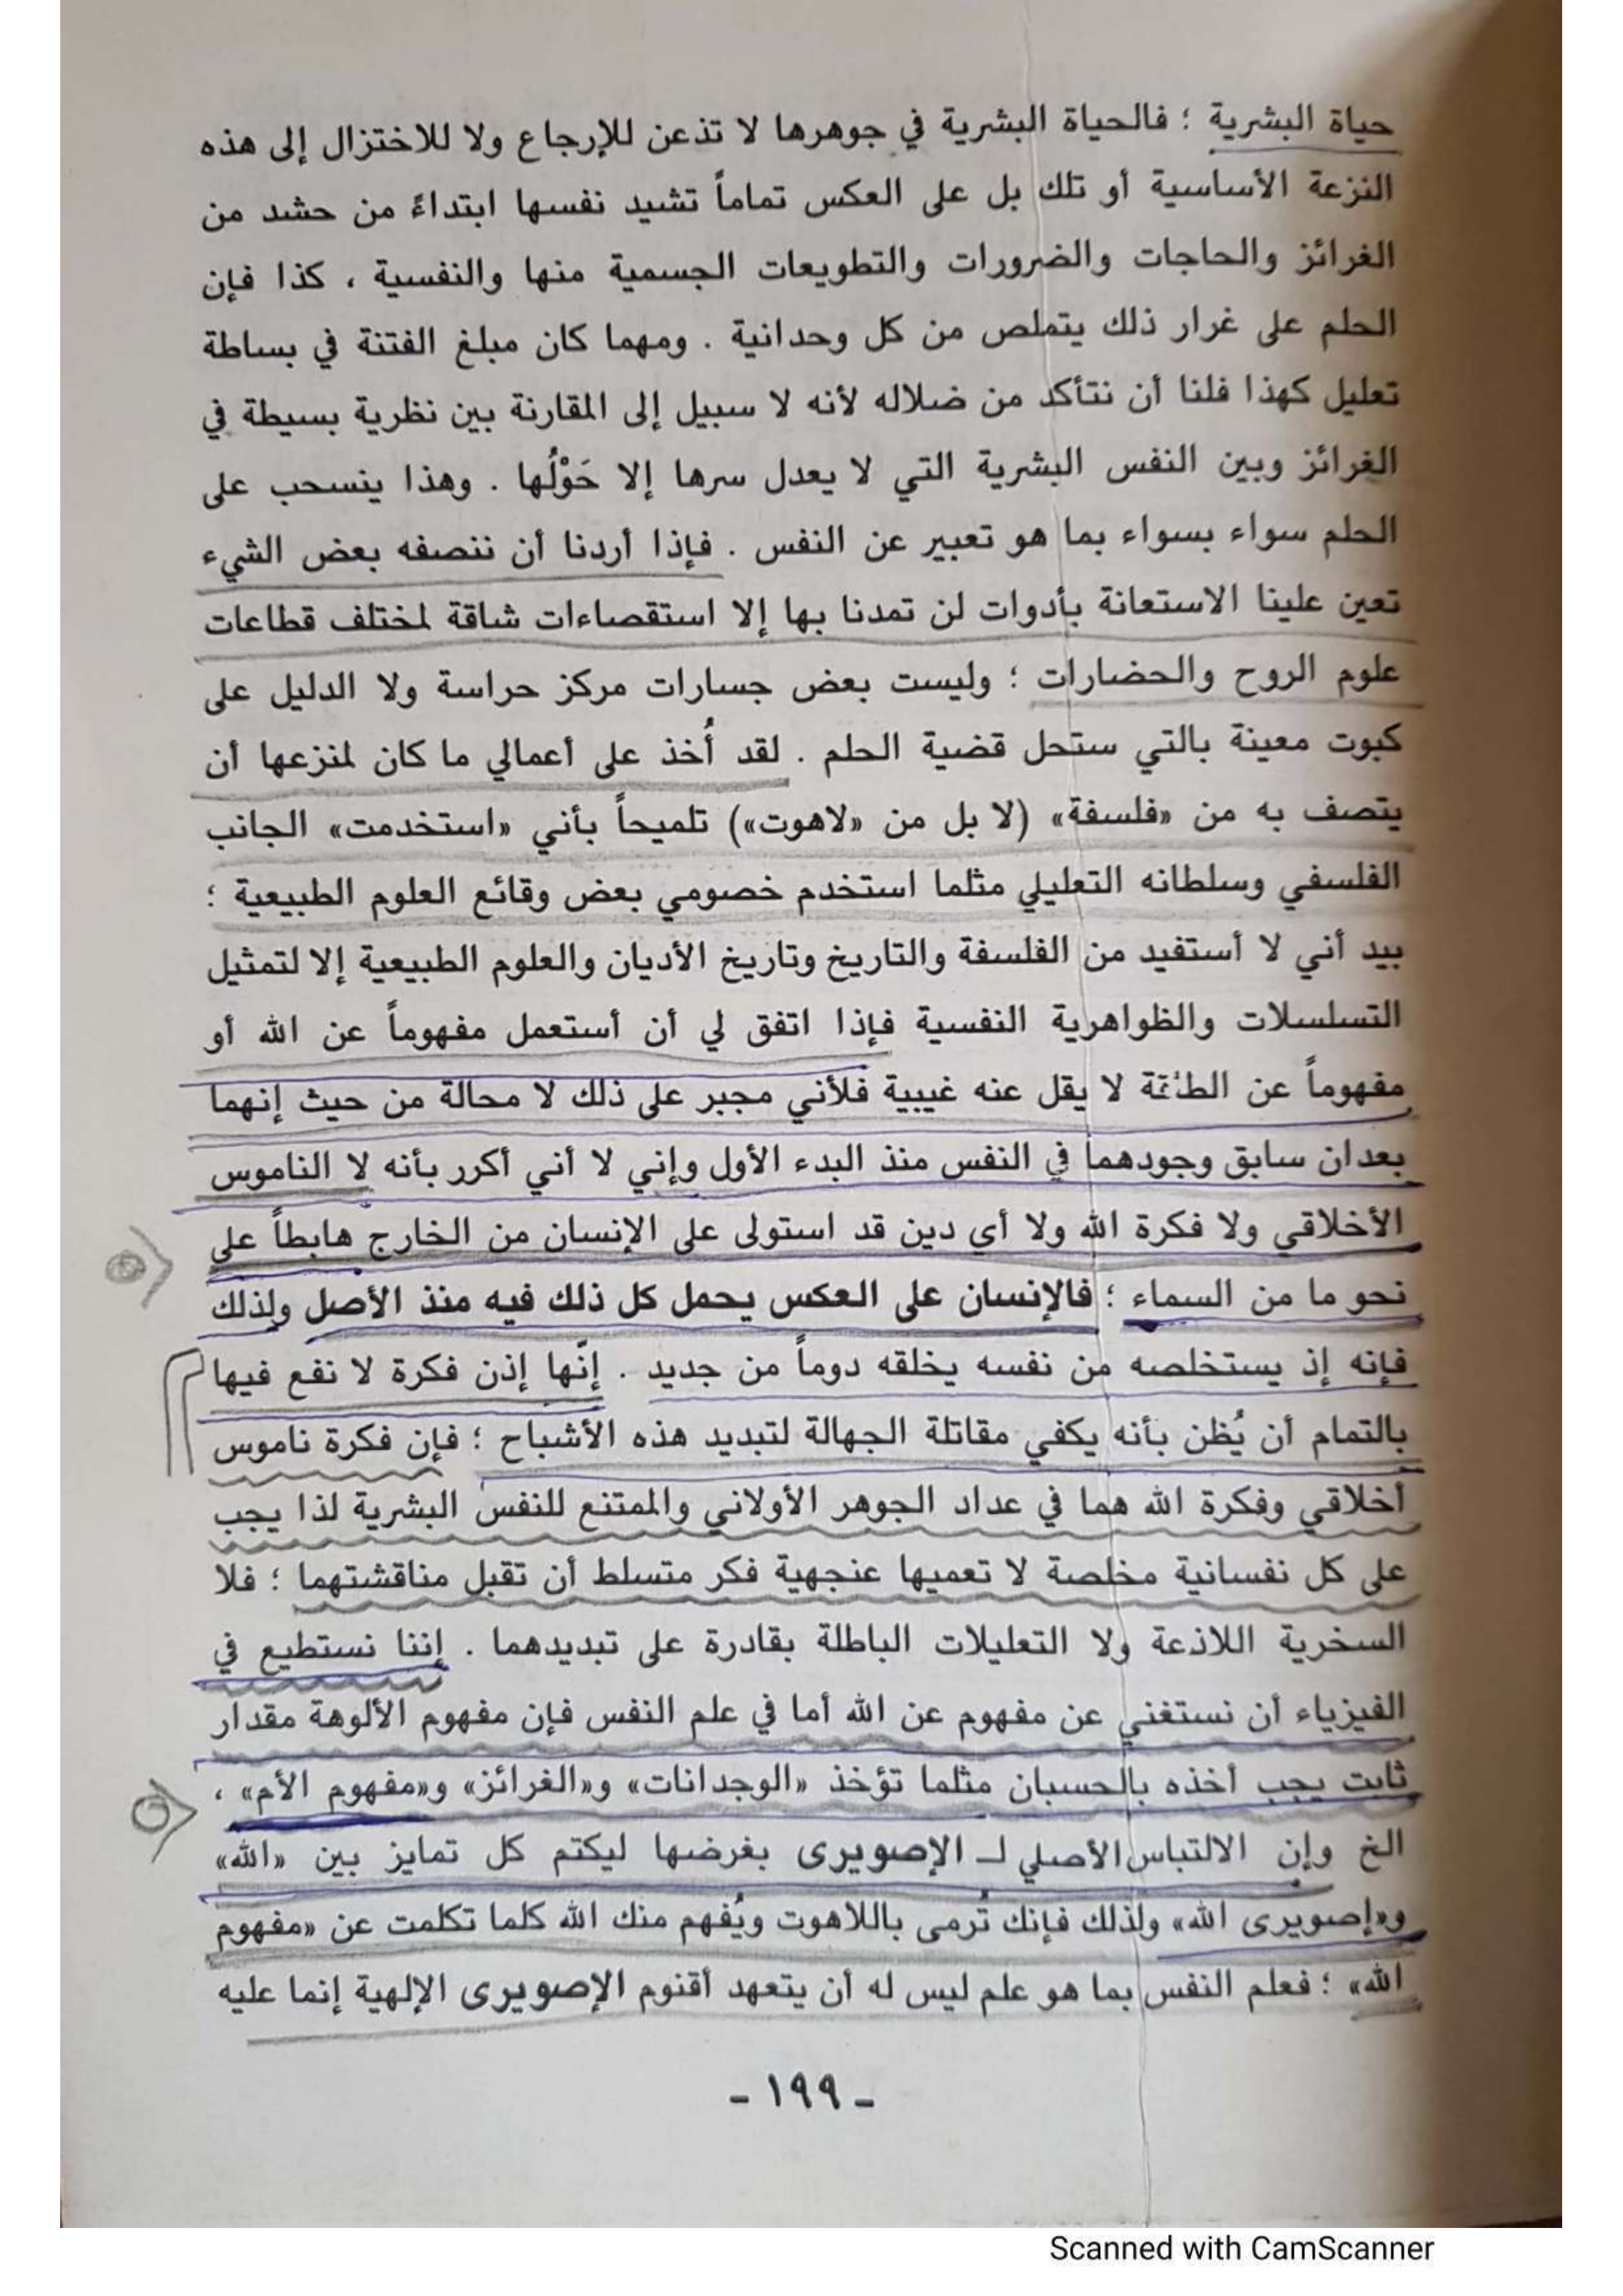 حياة البشرية ؛ فالحياة البشرية في جوهرها لا تذعن للإرجاع ولا للاختزال إلى هذه
النزعة الأساسية أو تلك بل على العكس تماماً تشيد نفسها ابتداءً من حشد من
الغرائز والحاجات والضرورات والتطويعات الجسمية منها والنفسية ، كذا فإن
الحلم على غرار ذلك يتملص من كل وحدانية . ومهما كان مبلغ الفتنة في بساطة
تعليل كهذا فلنا أن نتأكد من ضلاله لأنه لا سبيل إلى المقارنة بين نظرية بسيطة في
الغرائز وبين النفس البشرية التي لا يعدل سرها إلا حَوْلُها . وهذا ينسحب على
الحلم سواء بسواء بما هو تعبير عن النفس . فإذا أردنا أن ننصفه بعض الشيء
تعين علينا الاستعانة بأدوات لن تمدنا بها إلا استقصاءات شاقة لمختلف قطاعات
علوم الروح والحضارات ؛ وليست بعض جسارات مركز حراسة ولا الدليل على
كبوت معينة بالتي ستحل قضية الحلم . لقد أُخذ على أعمالي ما كان لمنزعها أن
يتصف به من «فلسفة» (لا بل من «لاهوت») تلميحاً بأني «استخدمت» الجانب
الفلسفي وسلطانه التعليلي مثلما استخدم خصومي بعض وقائع العلوم الطبيعية ؛
بيد أني لا أستفيد من الفلسفة والتاريخ وتاريخ الأديان والعلوم الطبيعية إلا لتمثيل
التسلسلات والظواهرية النفسية فإذا اتفق لي أن أستعمل مفهوماً عن الله أو
مفهوماً عن لا يقل عنه غيبية فلأني مجبر على ذلك لا محالة من حيث إنهما
بعدان سابق وجودهما في النفس منذ البدء الأول وإني لا أني أكرر بأنه لا الناموس
الأخلاقي ولا فكرة الله ولا أي دين قد استولى على الإنسان من الخارج هابطاً على
نحو ما من السماء ؛ فالإنسان على العكس يحمل كل ذلك فيه منذ الأصل ولذلك
فإنه إذ يستخلصه من نفسه يخلقه دوماً من جديد . إنّها إذن فكرة لا نفع فيها
بالتمام أن يُظن بأنه يكفي مقاتلة الجهالة لتبديد هذه الأشباح ؛ فإن فكرة ناموس
أخلاقي وفكرة الله هما في عداد الجوهر الأولاني والممتنع للنفس البشرية لذا يجب
على كل نفسانية مخلصة لا تعميها عنجهية فكر متسلط أن تقبل مناقشتهما ؛ فلا
السخرية اللاذعة ولا التعليلات الباطلة بقادرة على تبديدهما . إننا نستطيع في
الفيزياء أن نستغني عن مفهوم عن الله أما في علم النفس فإن مفهوم الألوهة مقدار
ثابت يجب أخذه بالحسبان مثلما تؤخذ «الوجدانات» و«الغرائز» و«مفهوم الأم» ،
الخ وإن الالتباس الأصلي لـ الإصويرى بغرضها ليكتم كل تمايز بين «الله»
و«إصويرى الله» ولذلك فإنك تُرمى باللاهوت ويُفهم منك الله كلما تكلمت عن «مفهوم
الله» ؛ فعلم النفس بما هو علم ليس له أن يتعهد أقنوم الإصويرى الإلهية إنما عليه
- ١٩٩ -
Scanned with CamScanner